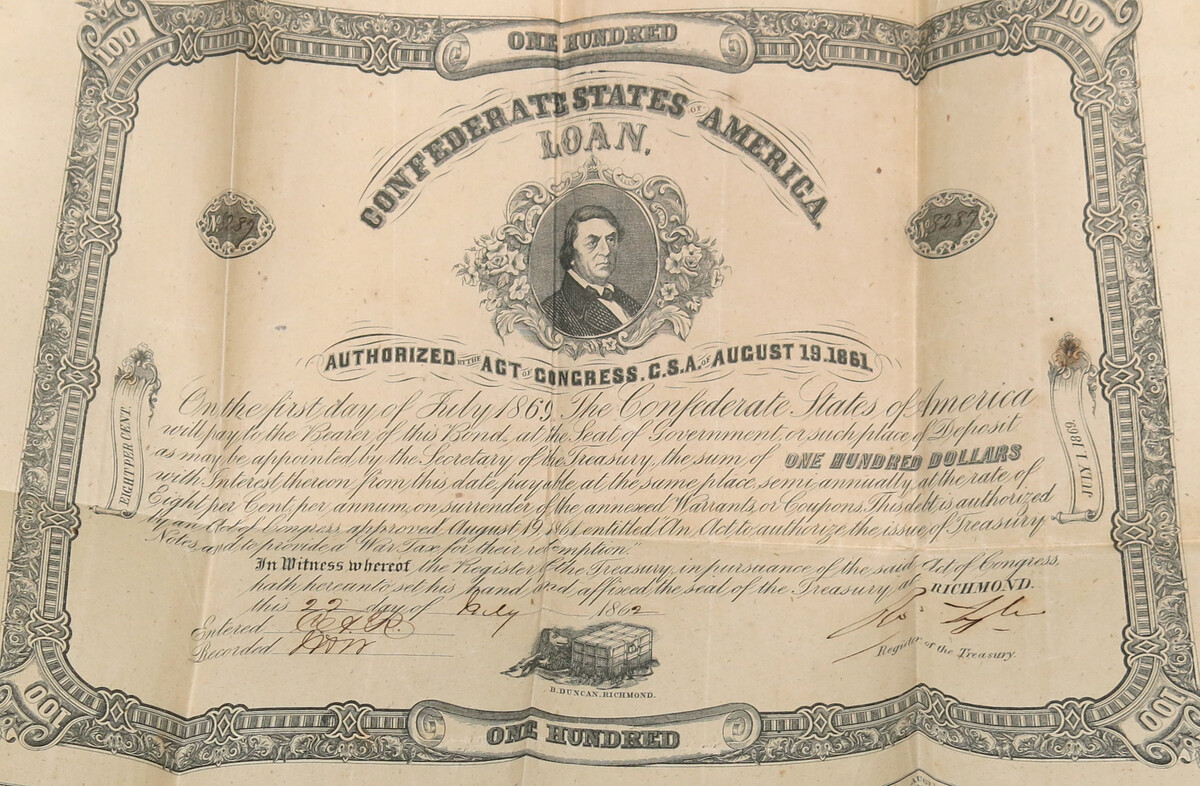 100
ONE HUNDRED
100
CONFEDERATE STATES OF AMERICA
LOAN.
No 8289
No 8289
AUTHORIZED BY THE ACT OF CONGRESS. C.S.A. OF AUGUST 19. 1861.
EIGHT PER CENT.
JULY 1. 1869.
On the first day of July 1869, The Confederate States of America
will pay to the Bearer of this Bond, at the Seat of Government, or such place of Deposit
as may be appointed by the Secretary of the Treasury, the sum of ONE HUNDRED DOLLARS
with Interest thereon from this date, payable at the same place, semi-annually, at the rate of
Eight per Cent, per annum, on surrender of the annexed Warrants, or Coupons. This debt is authorized
by an Act of Congress approved August 19, 1861, entitled "An Act to authorize the issue of Treasury
Notes, and to provide a War Tax for their redemption."
In Witness whereof the Register of the Treasury, in pursuance of the said Act of Congress,
hath hereunto set his hand and affixed the seal of the Treasury at RICHMOND.
this 22 day of July 1862
Entered
Recorded
Ro Tyler
Register of the Treasury.
B. DUNCAN. RICHMOND.
100
ONE HUNDRED
100